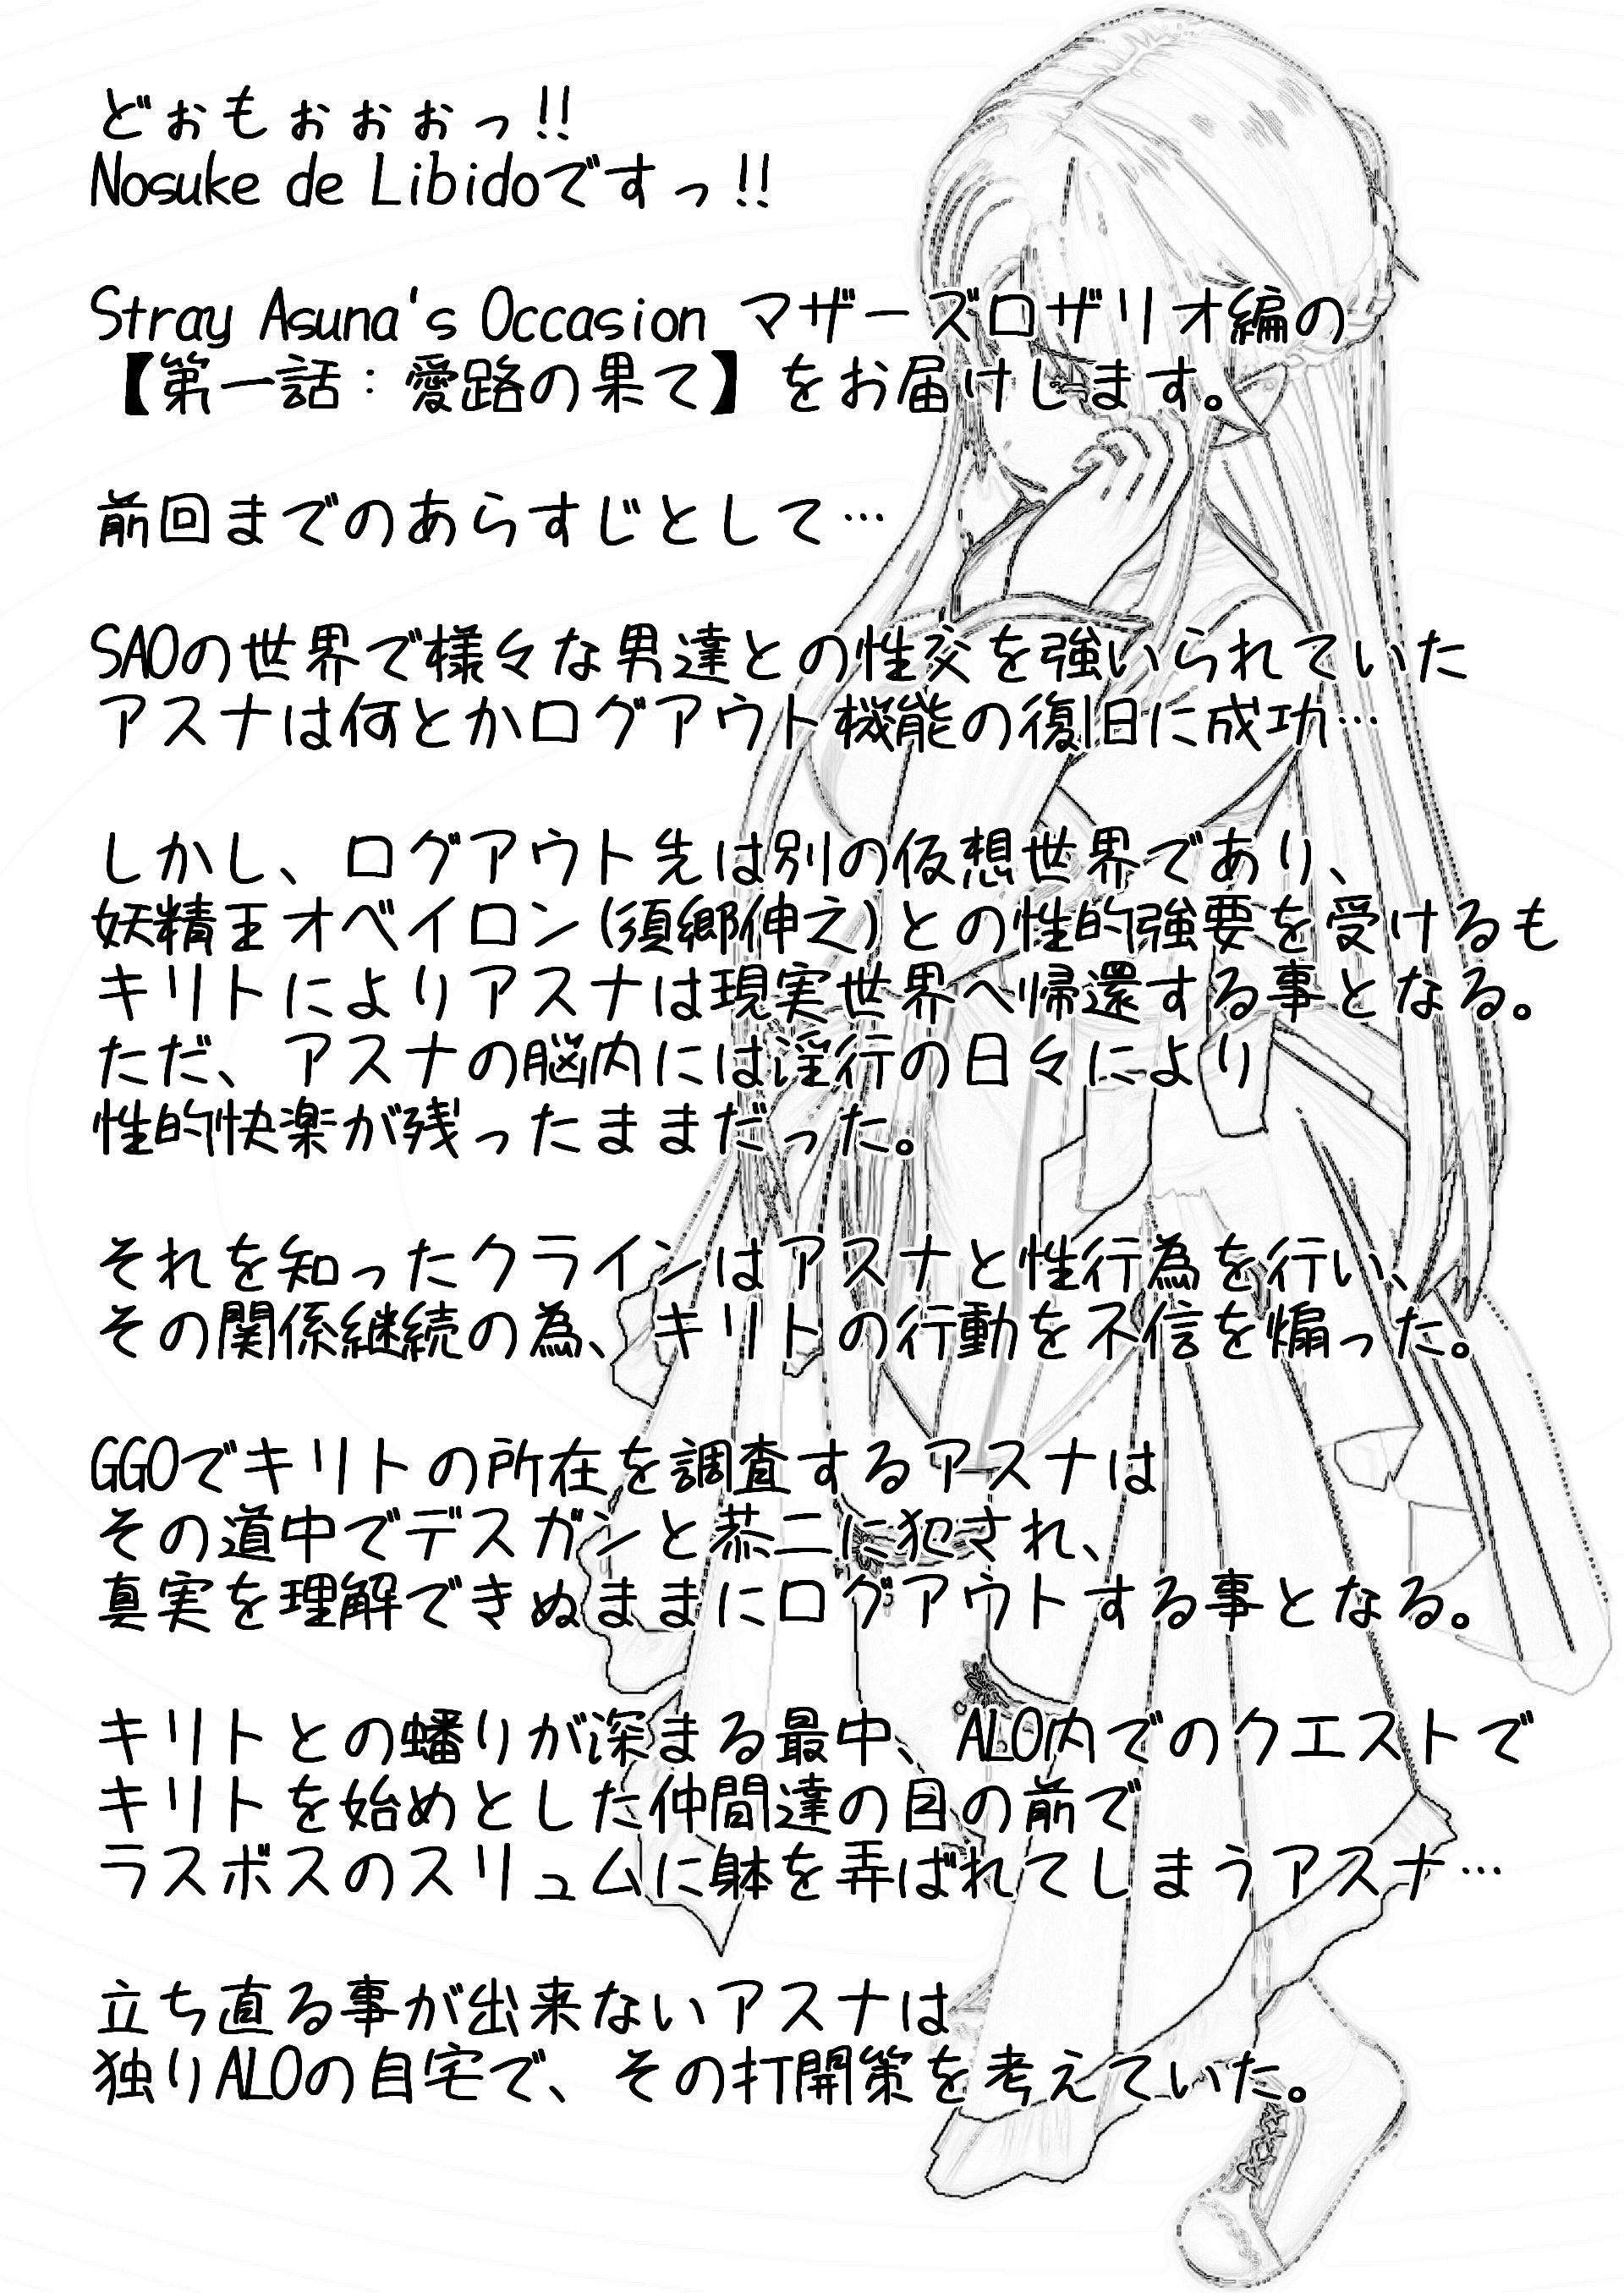 どぉもぉぉぉっ!!
Nosuke de Libidoですっ!!
Stray Asuna's Occasion マザーズロザリオ編の
【第一話：愛路の果て】をお届けします。
前回までのあらすじとして…
SAOの世界で様々な男達との性交を強いられていた
アスナは何とかログアウト機能の復旧に成功…
しかし、ログアウト先は別の仮想世界であり、
妖精王オベイロン(須郷伸之)との性的強要を受けるも
キリトによりアスナは現実世界へ帰還する事となる。
ただ、アスナの脳内には淫行の日々により
性的快楽が残ったままだった。
それを知ったクラインはアスナと性行為を行い、
その関係継続の為、キリトの行動を不信を煽った。
GGOでキリトの所在を調査するアスナは
その道中でデスガンと恭二に犯され、
真実を理解できぬままにログアウトする事となる。
キリトとの蟠りが深まる最中、ALO内でのクエストで
キリトを始めとした仲間達の目の前で
ラスボスのスリュムに躰を弄ばれてしまうアスナ…
立ち直る事が出来ないアスナは
独りALOの自宅で、その打開策を考えていた。